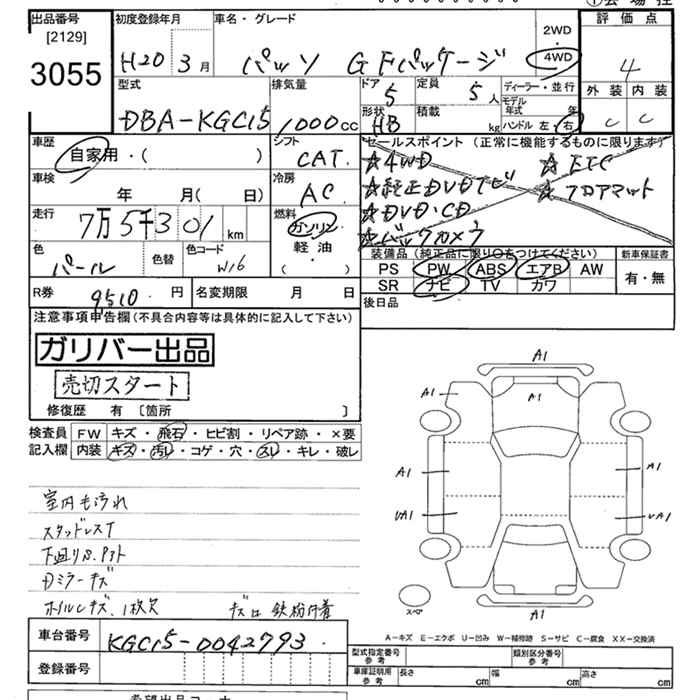 出品番号
[2129]
3055
初度登録年月
H20 3月
車名・グレード
パッソ GFパッケージ
2WD
4WD
評価点
4
外装 内装
C C
型式
DBA-KGC15
排気量
1000cc
ドア
5
定員
5人
形状
HB
積載
kg
ディーラー・並行
モデル年式 年
ハンドル 左・右
車歴
自家用・( )
シフト
CAT.
セールスポイント(正常に機能するものに限ります)
☆4WD ☆ETC
☆純正DVDナビ ☆フロアマット
☆DVD・CD
☆バックカメラ
車検
年 月( 日)
冷房
AC
走行
7万5千301km
燃料
ガソリン
軽油・
( )
色
パール
色替
色コード
W16
装備品(純正品に限り○をつけてください)
PS PW ABS エアB AW
SR ナビ TV カワ
新車保証書
有・無
R券 9510円
名変期限 月 日
後日品
注意事項申告欄(不具合内容等は具体的に記入して下さい)
ガリバー出品
売切スタート
修復歴 有 [箇所 ]
検査員記入欄
FW キズ・飛石・ヒビ割・リペア跡・×要
内装 キズ・汚レ・コゲ・穴・スレ・キレ・破レ
室内も汚れ
スタッドレスT
下廻りS.Pアト
Dミラーキズ
ホイルCキズ、1枚欠
A1
A1
A1
A1
A1
UA1
UA1
A1
スペア
A-キズ E-エクボ U-凹み W-補修跡 S-サビ C-腐食 XX-交換済
車台番号 KGC15-0042793.
登録番号
型式指定番号
参考
類別区分番号
参考
車庫証明用
参考
長さ cm 幅 cm 高さ cm